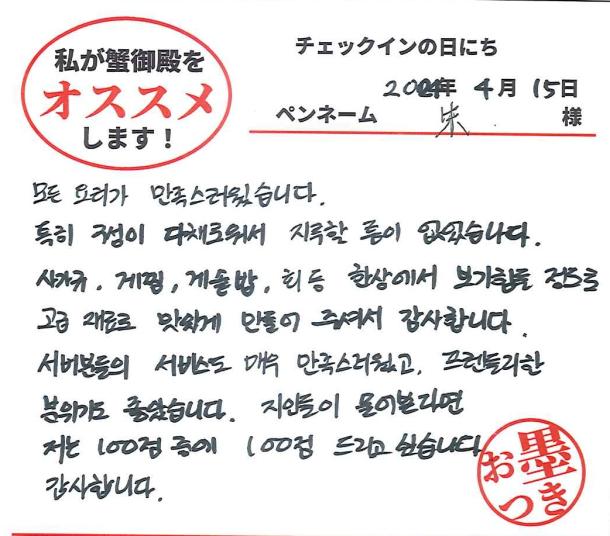 私が蟹御殿を
オススメ
します！
チェックインの日にち
2024年 4月 15日
ペンネーム 朱 様
모든 요리가 만족스러웠습니다.
특히 구성이 다채로워서 지루할 틈이 없었습니다.
사가규, 게찜, 게솥밥, 회 등 한상에서 보기힘들 정도로
고급 재료로 맛있게 만들어 주셔서 감사합니다.
서버분들의 서비스도 매우 만족스러웠고, 프런들리한
분위기도 좋았습니다. 지인들이 물어본다면
저는 100점 중에 100점 드리고 싶습니다.
감사합니다.
お墨
つき